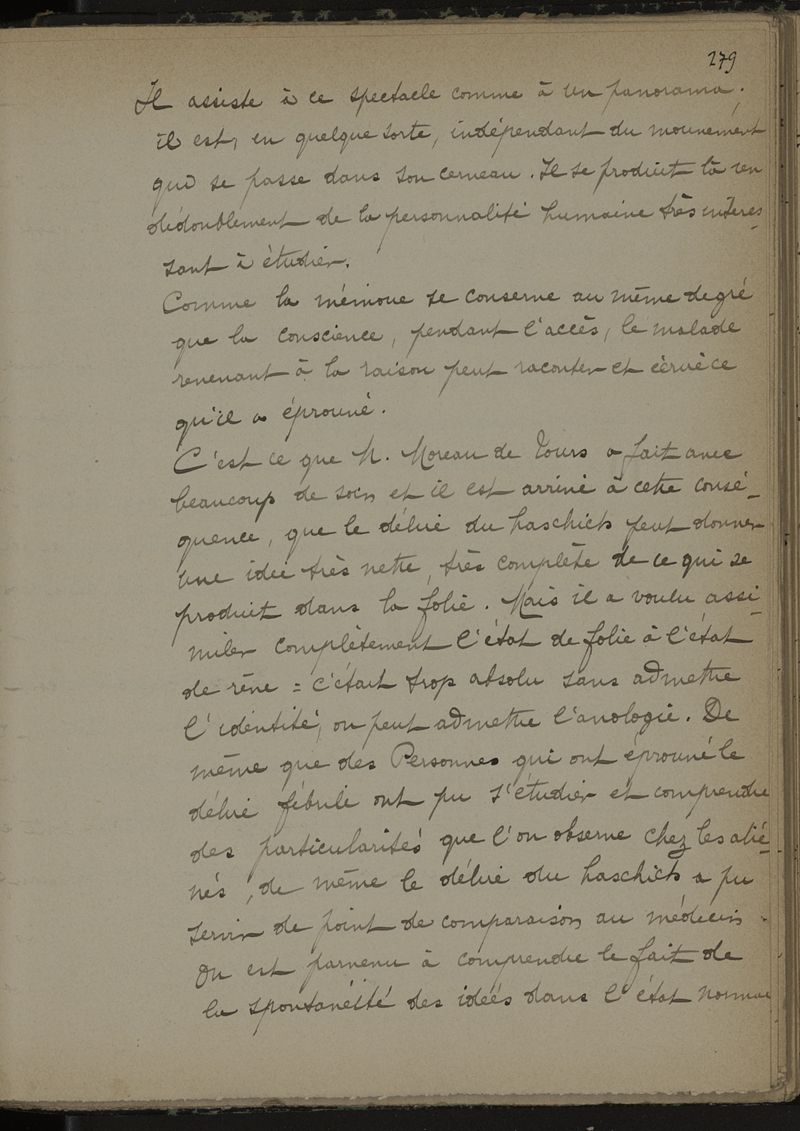 279
Il assiste à ce spectacle comme à un panorama.
il est, en quelque sorte, indépendant du mouvement
qui se passe dans son cerveau. Il se produit là un
dédoublement de la personnalité humaine très intéres-
sant à étudier.
Comme la mémoire se conserve au même degré
que la conscience, pendant l'accès, le malade
revenant à la raison peut raconter et écrire ce
qu'il a éprouvé.
C'est ce que M. Moreau de Tours a fait avec
beaucoup de soin et il est arrivé à cette consé-
quence, que le délire du haschich peut donner
une idée très nette, très complète de ce qui se
produit dans la folie. Mais il a voulu assi-
miler complètement l'état de folie à l'état
de rêve = c'était trop absolu sans admettre
l'identité, on peut admettre l'analogie. De
même que des Personnes qui ont éprouvé le
délire fébrile ont pu s'étudier et comprendre
des particularités que l'on observe chez les alié-
nés, de même le délire du haschich a pu
servir de point de comparaison au médecin.
On est parvenu à comprendre le fait de
la spontanéité des idées dans l'état normal